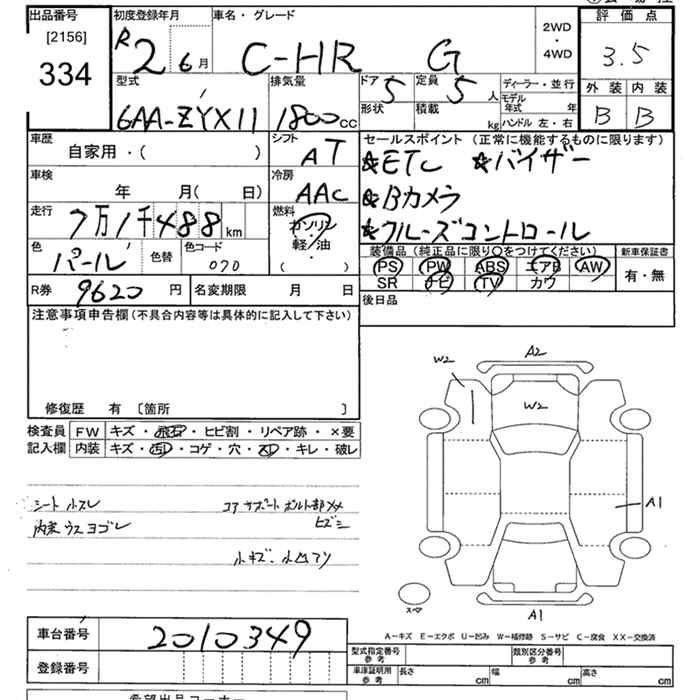 出品番号 初度登録年月 車名・グレード 2WD・4WD 評価点
[2156] 334 R2 6月 C-HR G 3.5
型式 排気量 ドア 5 定員 5人 ディーラー・並行 外装 内装
6AA-ZYX11 1800CC 形状 積載 kg モデル年式 年 ハンドル 左・右 B B
車歴 シフト セールスポイント (正常に機能するものに限ります)
自家用・( ) AT ★ETC ★バイザー
車検 冷房 ★Bカメラ
年 月( 日) AAC ★クルーズコントロール
走行 7万1千488km 燃料 ガソリン・軽油・( )
色 パール 色替 色コード 070 装備品 (純正品に限り○をつけてください) 新車保証書
PS PW ABS エアB AW 有・無
R券 9620円 名変期限 月 日 SR ナビ TV カワ
注意事項申告欄(不具合内容等は具体的に記入して下さい) 後日品
修復歴 有 [箇所 ]
検査員 FW キズ・飛石・ヒビ割・リペア跡・×要
記入欄 内装 キズ・汚レ・コゲ・穴・スレ・キレ・破レ
W2 A2
W2
シート小スレ コアサポートボルト部メメ
内装ウスヨゴレ ヒズミ
A1
小キズ・小凹アリ
スペア A1
A-キズ E-エクボ U-凹み W-補修跡 S-サビ C-腐食 XX-交換済
車台番号 2010349 型式指定番号 参考 類別区分番号 参考
登録番号 車庫証明用 参考 長さ cm 幅 cm 高さ cm
希望出品コーナー